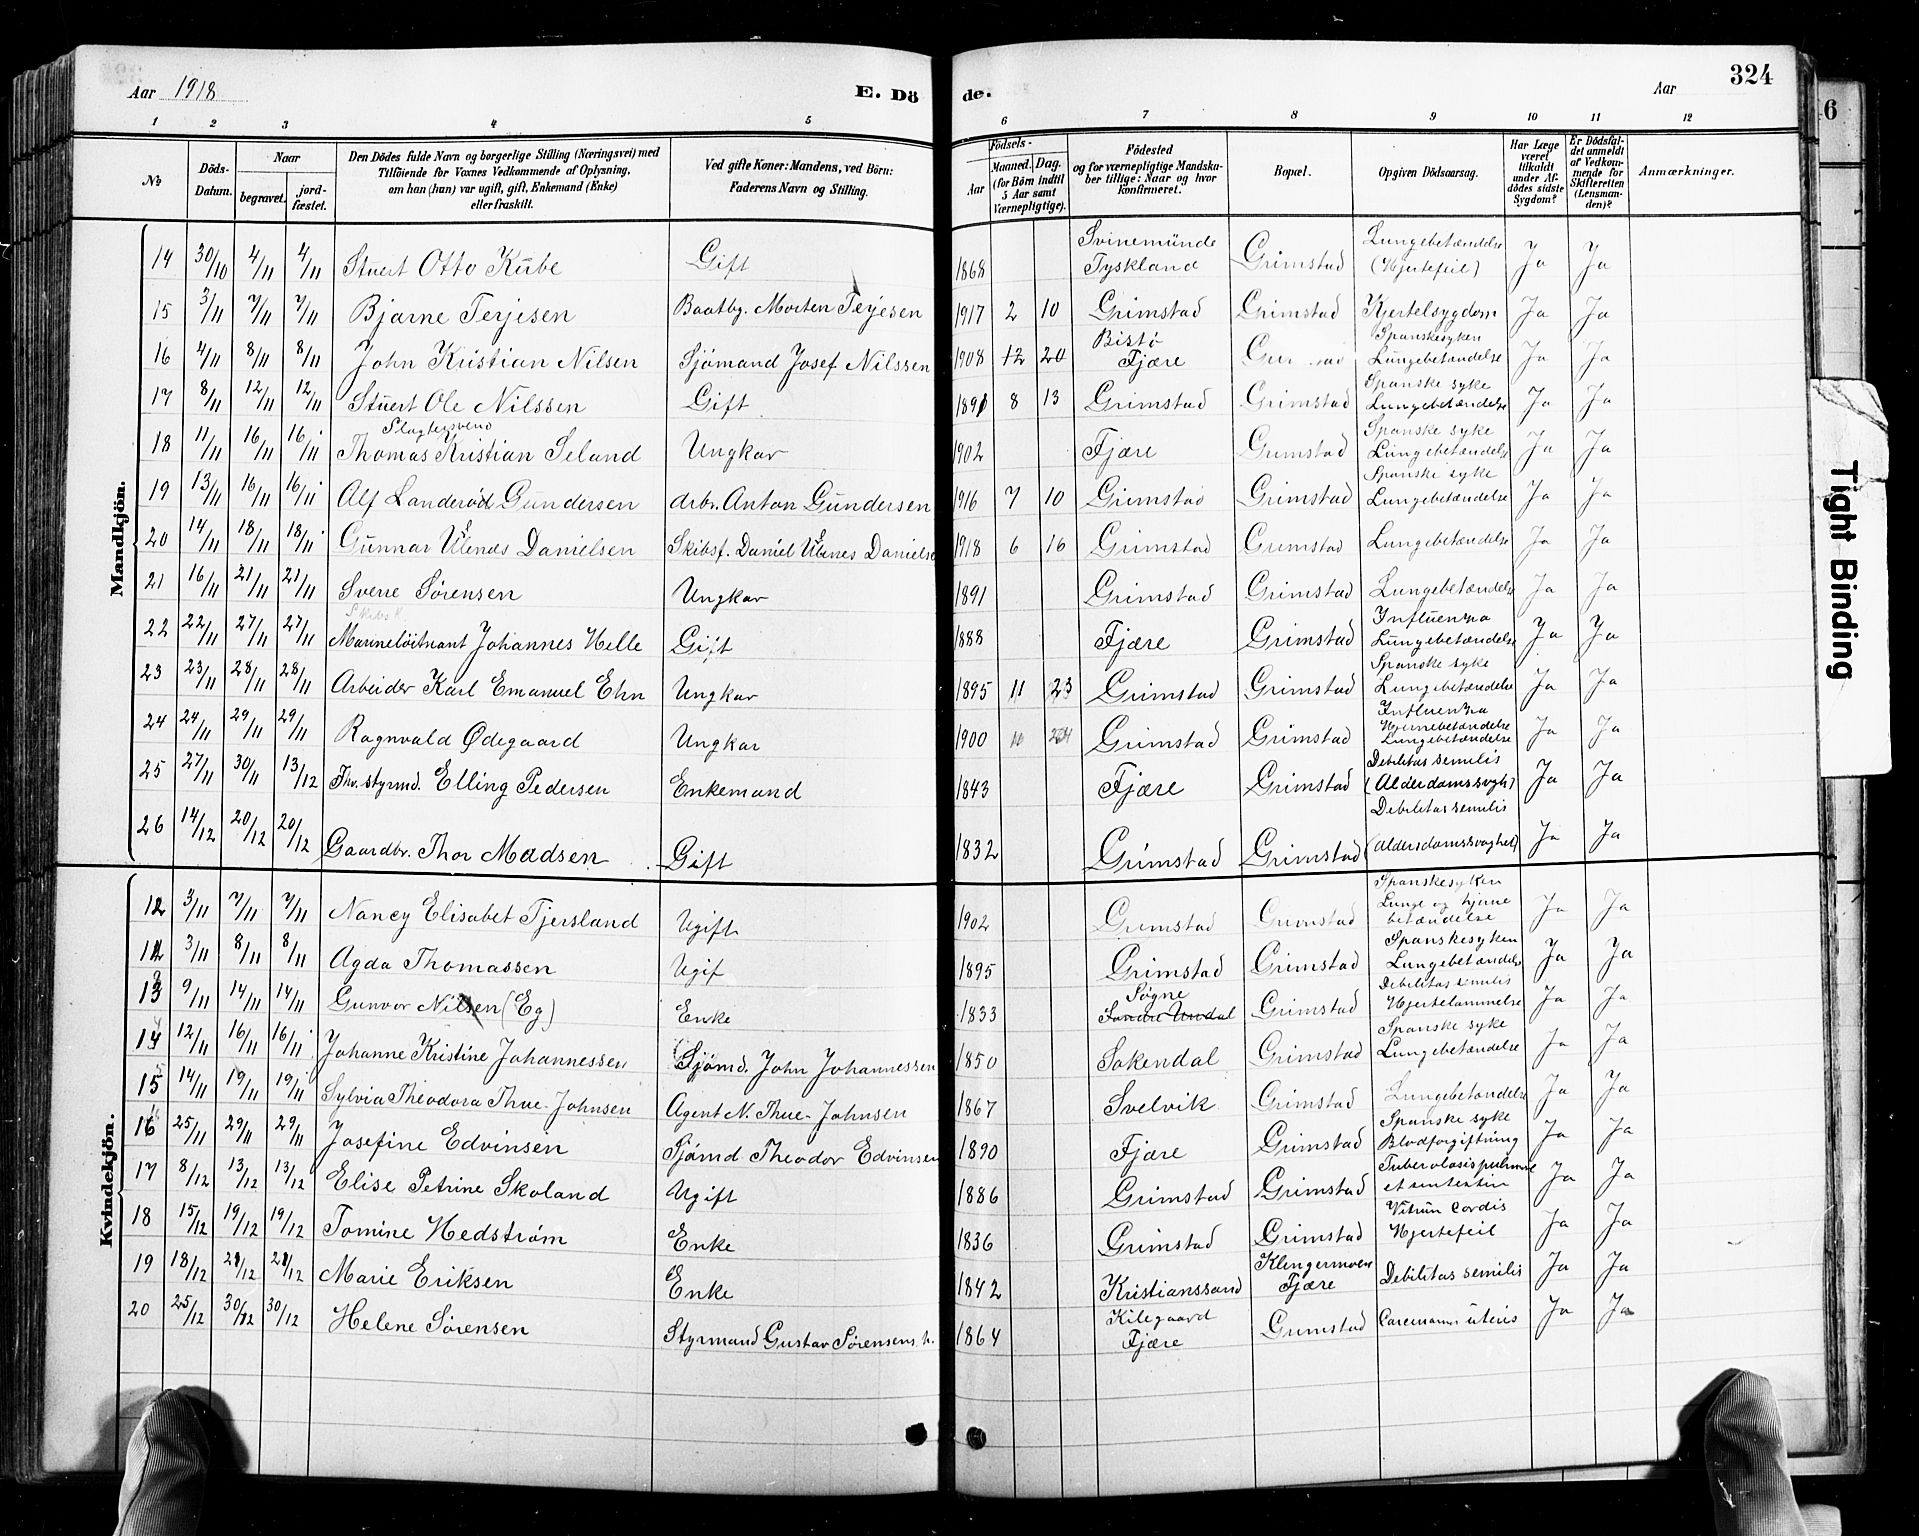 Aar 1918 E. Dö de. Aar 324
1 2 3 4 5 6 7 8 9 10 11 12
№ Döds-Datum. Naar begravet. jord-fæstet. Den Dödes fulde Navn og borgerlige Stilling (Næringsvei) med Tilföiende for Voxnes Vedkommende af Oplysning, om han (hun) var ugift, gift, Enkemand (Enke) eller fraskilt. Ved gifte Koner: Mandens, ved Börn: Faderens Navn og Stilling. Födsels- Aar Maaned. Dag. (for Börn indtil 5 Aar samt Værnepligtige). Födested og for værnepligtige Mandska-ber tillige: Naar og hvor konfirmeret. Bopæl. Opgiven Dödsaarsag. Har Læge været tilkaldt under Af-dödes sidste Sygdom? Er Dödsfal-det anmeldt af Vedkom-mende for Skifteretten (Lensman-den)? Anmærkninger.
Mandkjön.
14 30/10 4/11 4/11 Stuert Otto Kübe Gift 1868 Svinemünde Tyskland Grimstad Lungebetændelse (Hjertefeil) Ja Ja
15 3/11 7/11 7/11 Bjarne Terjesen Baatbg. Morten Terjesen 1917 2 10 Grimstad Grimstad Kjertelsygdom Ja Ja
16 4/11 8/11 8/11 John Kristian Nilsen Sjömand Josef Nilssen 1908 12 20 Bistö Fjære Spanskesyken Lungebetændelse Ja Ja
17 8/11 12/11 12/11 Stuert Ole Nilssen Gift 1891 8 13 Grimstad Grimstad Spanske syke Lungebetændelse Ja Ja
18 11/11 16/11 16/11 Slagtersvend Thomas Kristian Seland Ungkar 1902 Fjære Grimstad Spanske syke Lungebetændelse Ja Ja
19 13/11 16/11 16/11 Alf Landerød Gundersen Arb. Anton Gundersen 1916 7 10 Grimstad Grimstad Spanske syke Lungebetændelse Ja Ja
20 14/11 18/11 18/11 Gunnar Ulenes Danielsen Skibsf. Daniel Ulenes Danielse 1918 6 16 Grimstad Grimstad Lungebetændelse Ja Ja
21 16/11 21/11 21/11 Sverre Sørensen Ungkar 1891 Grimstad Grimstad Lungebetændelse Ja Ja
22 22/11 27/11 27/11 Marineløitnant Johannes Helle Gift 1888 Fjære Grimstad Influenza Lungebetændelse Ja Ja
23 23/11 28/11 28/11 Arbeider Karl Emanuel Ehn Ungkar 1895 11 23 Grimstad Grimstad Spanske syke Lungebetændelse Ja Ja
24 24/11 29/11 29/11 Ragnvald Ødegaard Ungkar 1900 Grimstad Grimstad Influenza Hjernebetændelse Lungebetændelse Ja Ja
25 27/11 30/11 13/12 Fhv. styrmd. Elling Pedersen Enkemand 1843 Fjære Grimstad Debilitas senilis (Alderdomssvagh) Ja Ja
26 14/12 20/12 20/12 Gaardbr. Thor Madsen Gift 1832 Grimstad Grimstad Debilitas senilis (Aldersdomssvaghet) Ja Ja
Kvindekjön.
12 3/11 7/11 7/11 Nancy Elisabet Tjersland Ugift 1902 Grimstad Grimstad Spanskesyken Lunge og hjerne betændelse Ja Ja
12 3/11 8/11 8/11 Agda Thomassen Ugif 1895 Grimstad Grimstad Spanskesyken Lungebetændelse Ja Ja
13 9/11 14/11 14/11 Gunvor Nilsen (Eg) Enke 1833 Søgne Søndre Undal Grimstad Debilitas senilis Hjertelammelse Ja Ja
14 12/11 16/11 16/11 Johanne Kristine Johannessen Sjømd. John Johannessen 1850 Sokendal Grimstad Spanske syke Lungebetændelse Ja Ja
15 14/11 19/11 19/11 Sylvia Theodora Thue-Johnsen Agent N. Thue-Johnsen 1867 Svelvik Grimstad Lungebetændelse Ja Ja
16 25/11 29/11 29/11 Josefine Edvinsen Sjømd Theodor Edvinsen 1890 Fjære Grimstad Spanske syke Blodforgiftning Ja Ja
17 8/12 13/12 13/12 Elise Petrine Skoland Ugift 1886 Grimstad Grimstad Ja Ja
18 15/12 19/12 19/12 Tomine Hedstrøm Enke 1836 Grimstad Grimstad Vitium cordis Hjertefeil Ja Ja
19 18/12 21/12 21/12 Marie Eriksen Enke 1842 Kristianssand Klingermoen Fjære Debilitas senilis Ja Ja
20 25/12 30/12 30/12 Helene Sørensen Styrmand Gustav Sørensens h. 1864 Kilegaard Fjære Grimstad uteris Ja Ja
Tight Binding
6